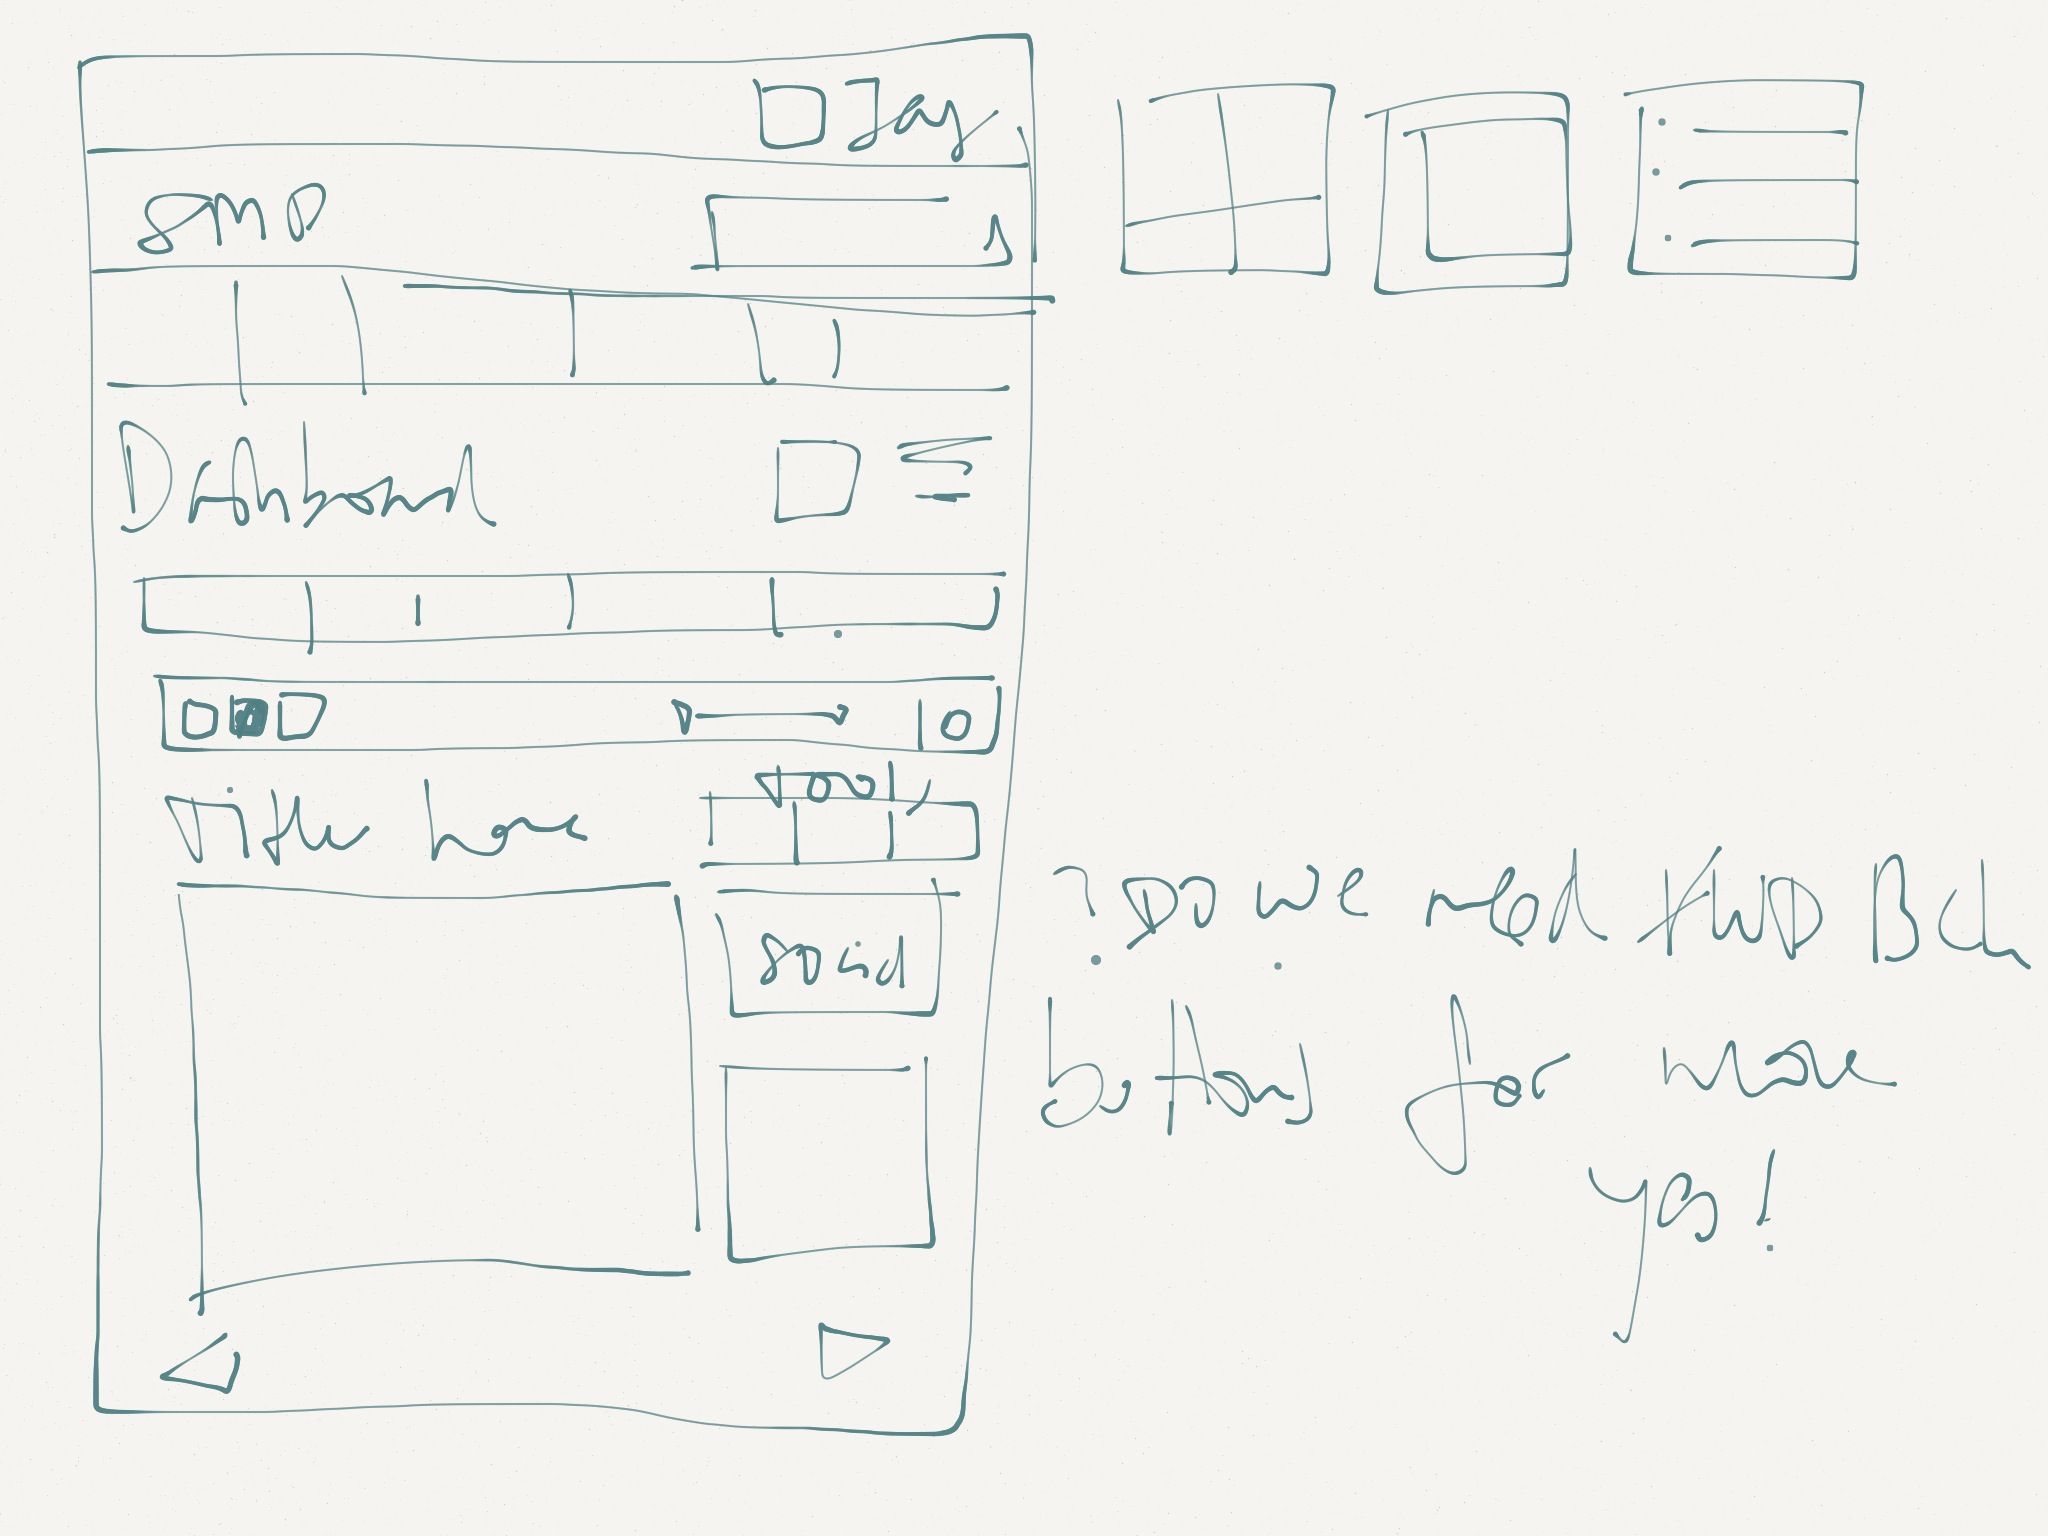 Jay
SMP
Dashboard
Title here
Tools
Social
? Do we need FWD BCK
buttons for more
yes!